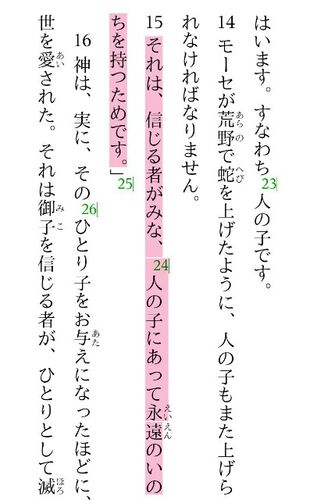 はいます。すなわち23人の子です。
14 モーセが荒野で蛇を上げたように、人の子もまた上げら
れなければなりません。
15 それは、信じる者がみな、24人の子にあって永遠のいの
ちを持つためです。」25
16 神は、実に、そ26のひとり子をお与えになったほどに、
世を愛された。それは御子を信じる者が、ひとりとして滅